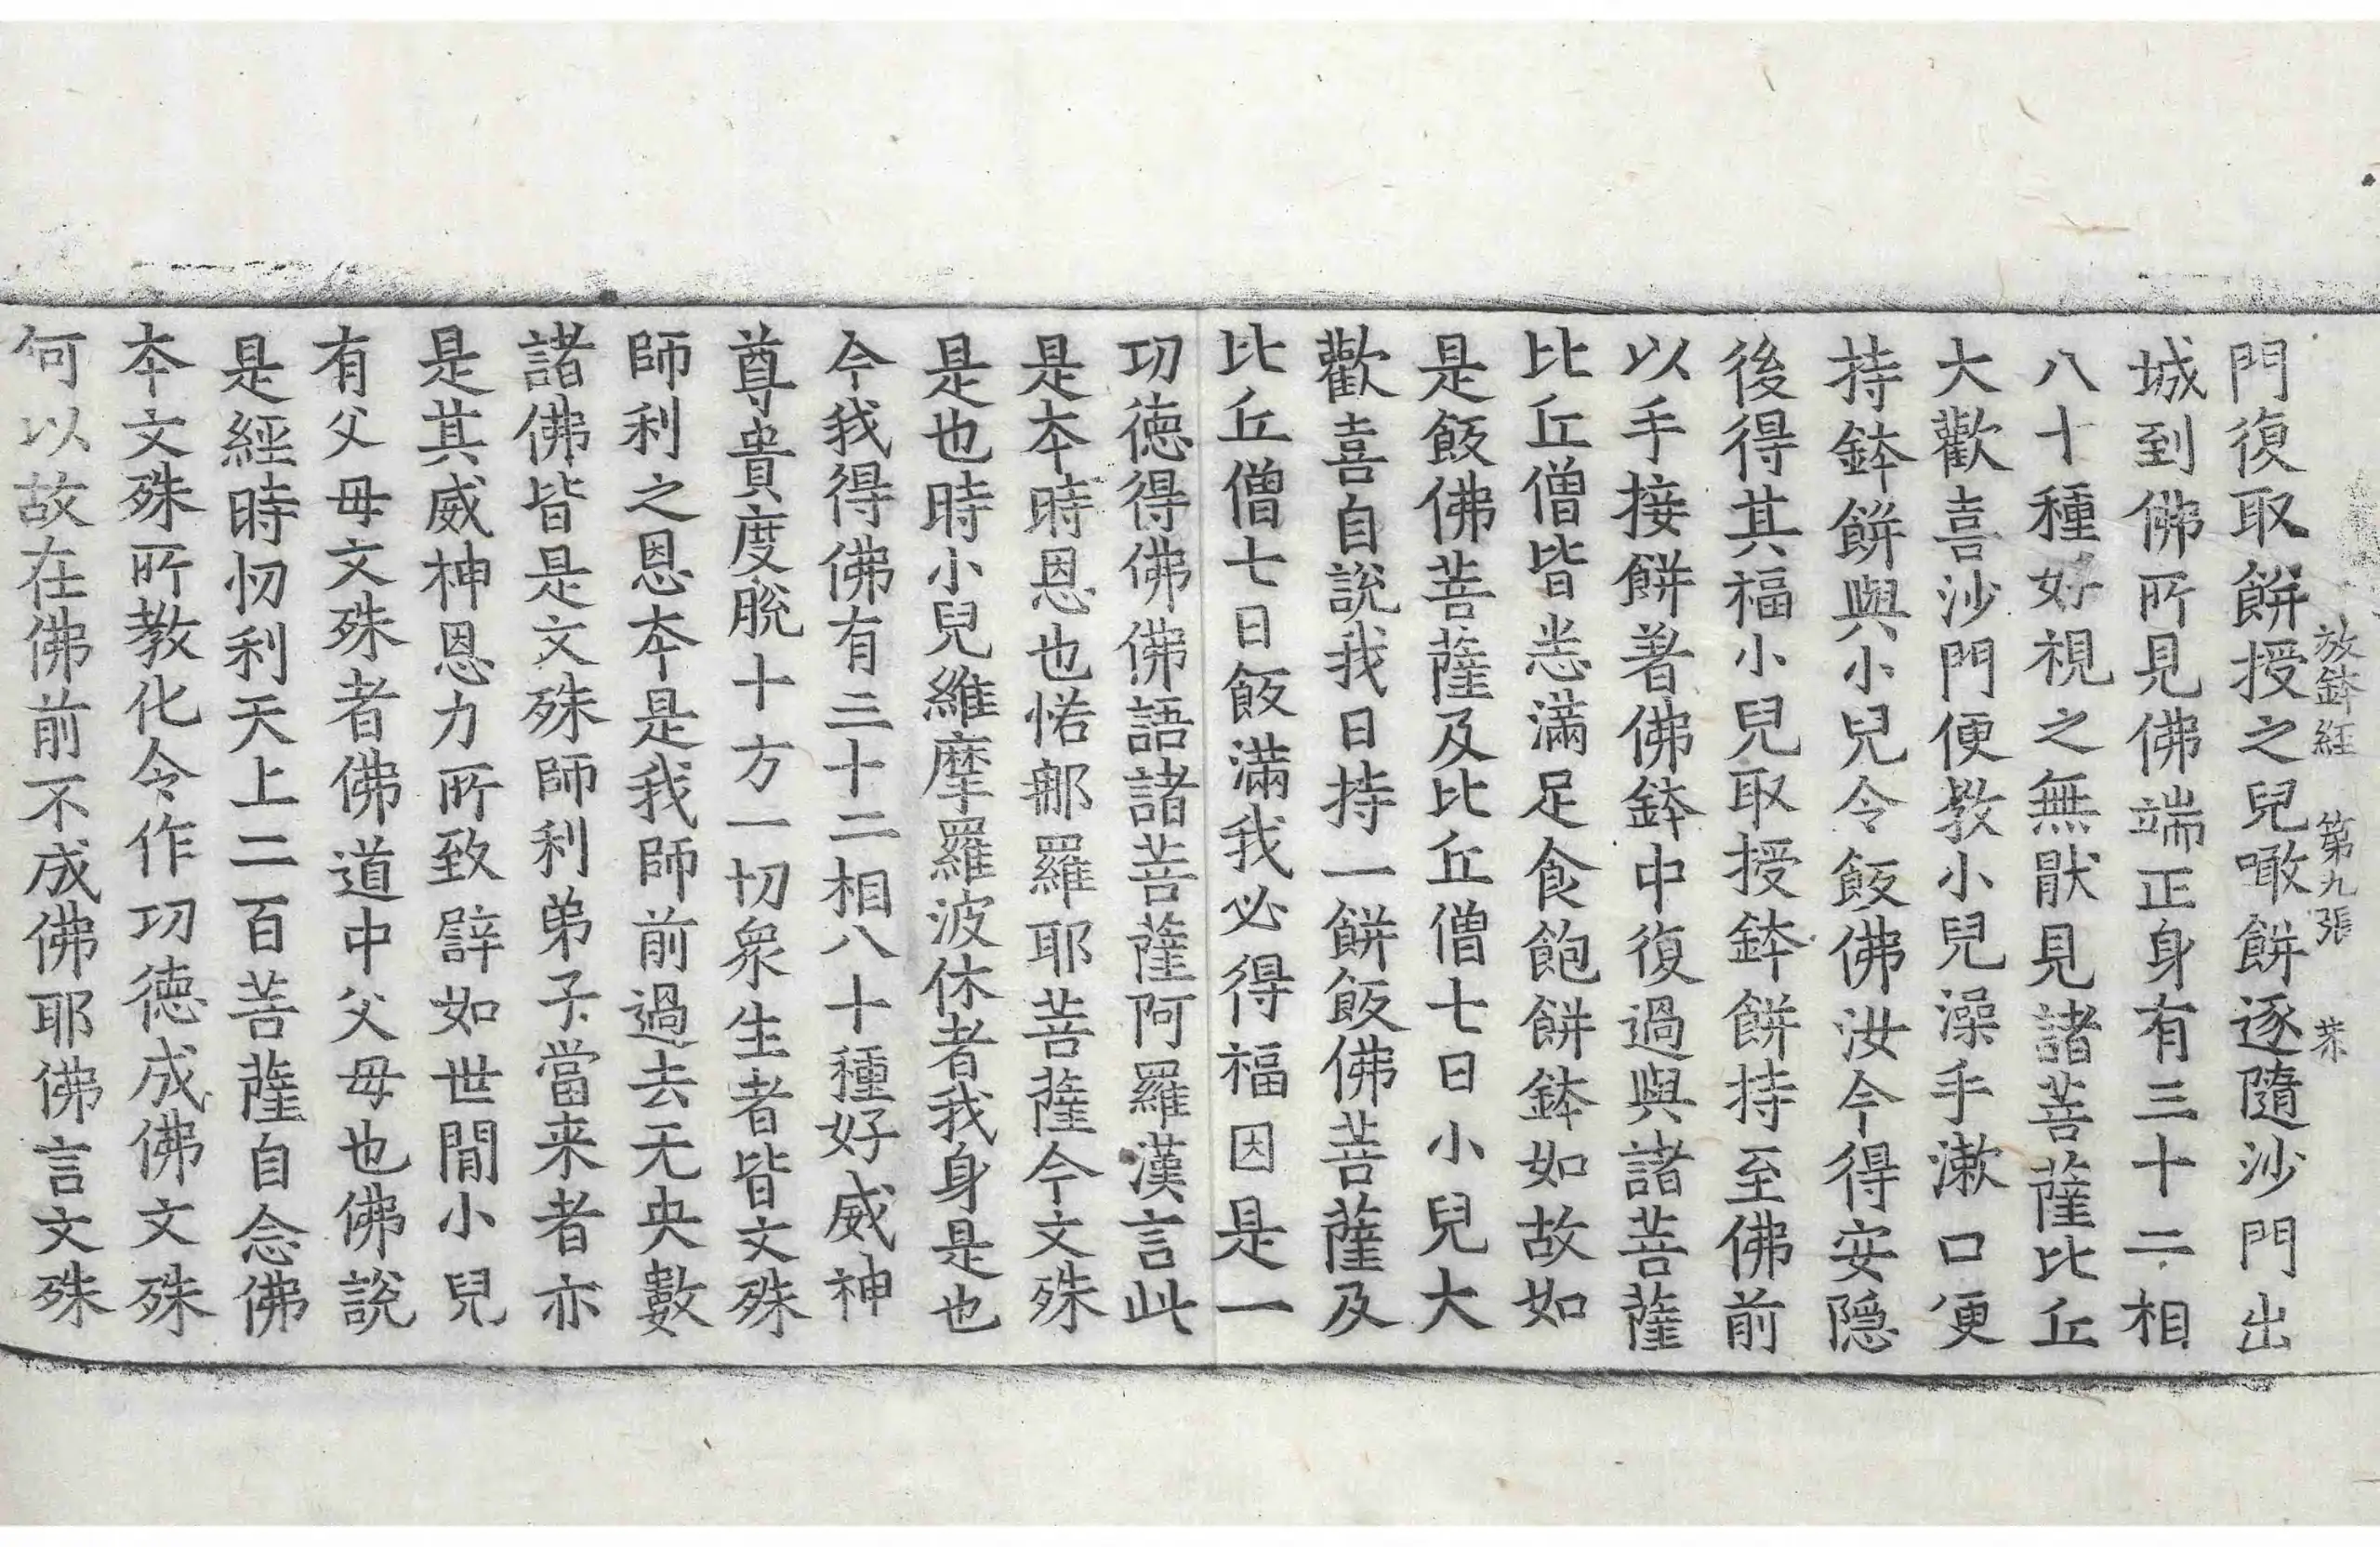 放鉢經 第九張 菜
門復取餅授之兒噉餅逐隨沙門出
城到佛所見佛端正身有三十二相
八十種好視之無猒見諸菩薩比丘
大歡喜沙門便教小兒澡手漱口更
持鉢餅與小兒令飯佛汝今得安隱
後得其福小兒取授鉢餅持至佛前
以手接餅著佛鉢中復過與諸菩薩
比丘僧皆悉滿足食飽餅鉢如故如
是飯佛菩薩及比丘僧七日小兒大
歡喜自說我日持一餅飯佛菩薩及
比丘僧七日飯滿我必得福因是一
功德得佛佛語諸菩薩阿羅漢言此
是本時恩也惒那羅耶菩薩今文殊
是也時小兒維摩羅波休者我身是也
今我得佛有三十二相八十種好威神
尊貴度脫十方一切衆生者皆文殊
師利之恩本是我師前過去无央數
諸佛皆是文殊師利弟子當来者亦
是其威神恩力所致譬如世閒小兒
有父母文殊者佛道中父母也佛說
是經時忉利天上二百菩薩自念佛
本文殊所教化令作功德成佛文殊
何以故在佛前不成佛耶佛言文殊